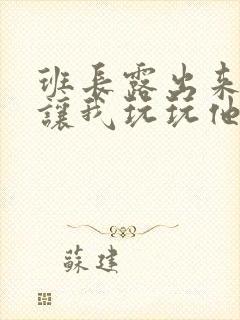 班長露出来
讓我玩玩他
蘇建